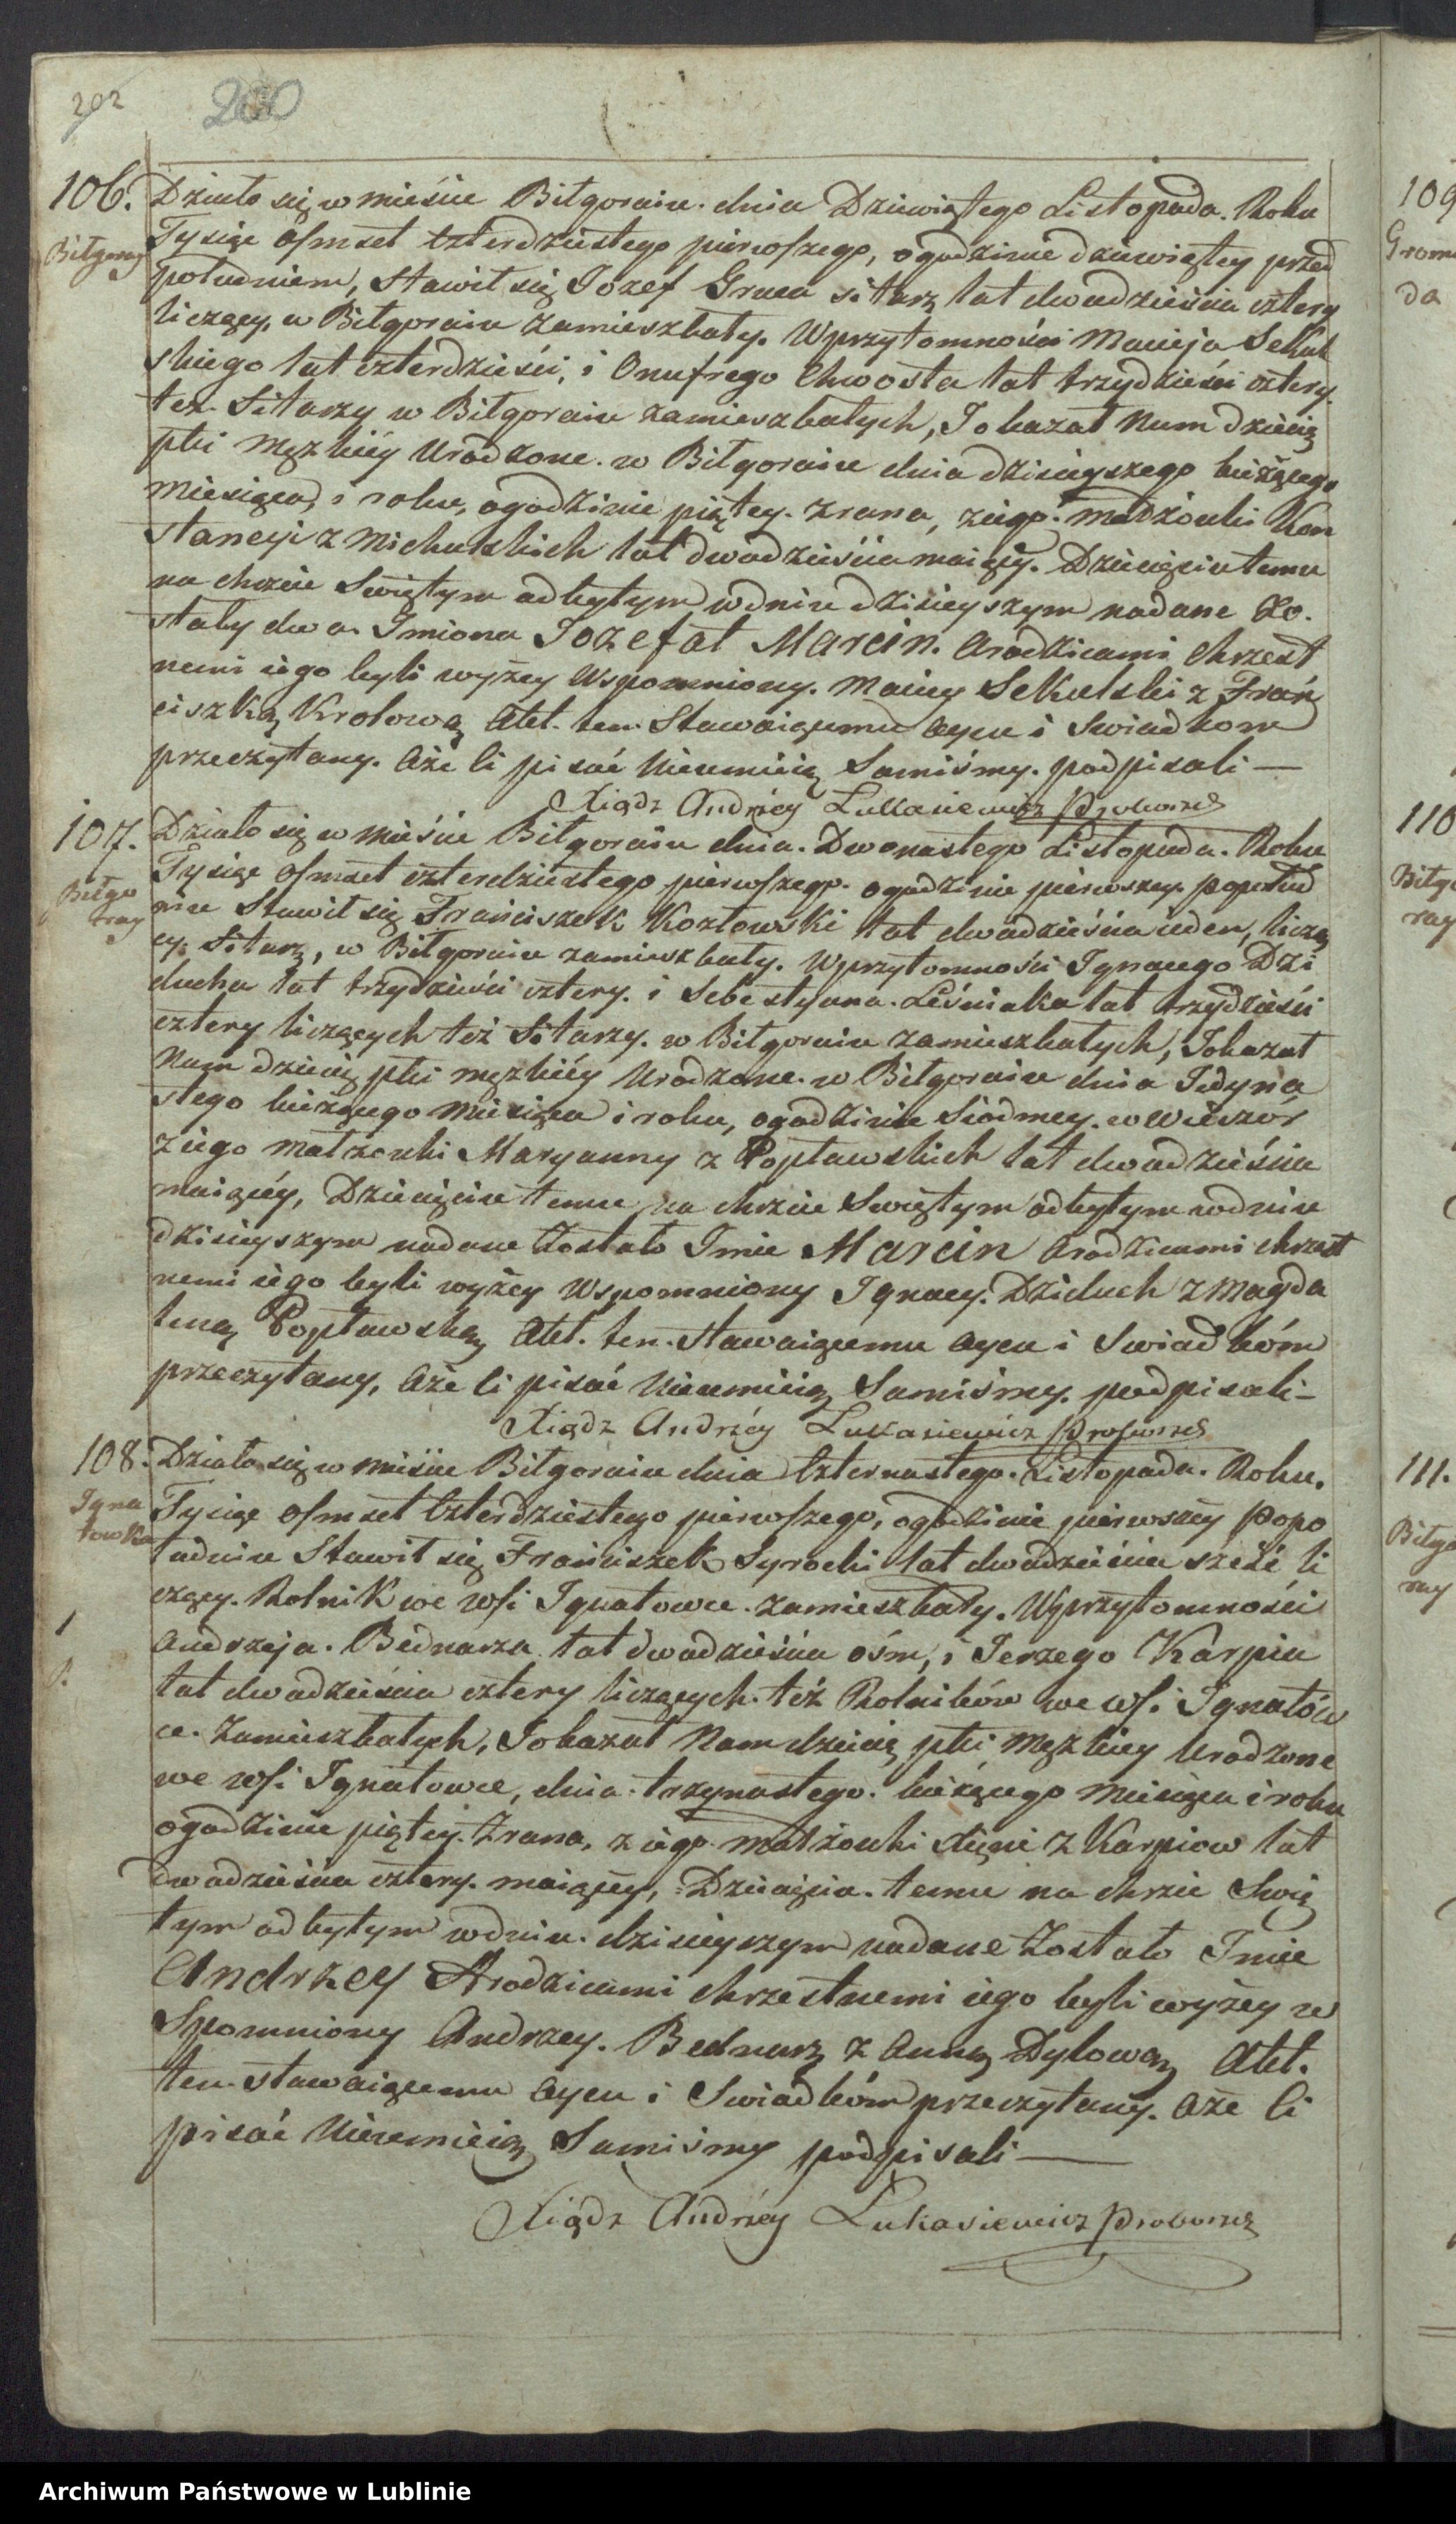 202 200
106. Działo się w mieście Biłgoraiu. dnia Dziewiątego Listopada. Roku
Biłgoray Tysiąc ośmset czterdziestego pierwszego, ogodzinie dziewiątey przed
południem, Stawił się Jozef Graca sitarz lat dwadzieścia cztery
liczący, w Biłgoraiu zamieszkały. Wprzytomności Macieja Sekul
skiego lat czterdzieści, i Onufrego Chwosta lat trzydzieści cztery.
też. Sitarzy w Biłgoraiu zamieszkałych, Jokazał Nam dziecię
płci Męzkiéy Urodzone. w Biłgoraiu dnia dzisieyszego bieżącego
Miesiąca, i roku, ogodzinie piątey. zrana, ziego. małżonki Kon
stancyi z Michalskich lat dwadzieścia maiącéy. Dziecięciu temu
na chrzcie Swiętym odbytym wdniu dzisieyszym nadane Zo.
stały dwa. Jmiona Jozefat Marcin. arodzicami chrzest
nemi iego byli wyżey Wspomniony. Maciey Sekulski z Frań
ciszką Krolową Akt. ten. Stawaiącemu oycu i Swiadkom
przeczytany. Aże li pisać Nieumieią Samiśmy. podpisali —
Xiądz Andrzéy Łukasiewicz Proboszcz
107. Działo się w Mieście Biłgoraiu dnia. Dwonastego Listopada. Roku
Biłgo Tysiąc ośmset czterdziestego pierwszego. ogodzinie pierwszey. popołud
ray niu Stawił się Frańciszek Kozłowski lat dwadzieścia ieden, liczą
cy. Sitarz, w Biłgoraiu zamieszkały. Wprzytomności Jgnacego Dzi
ducha lat trzydzieści cztery. i Sebestyana. Leśniaka lat trzydzieści
cztery liczących też Sitarzy. w Biłgoraiu zamieszkałych, Jokazał
Nam dziecię płci męzkiéy Urodzone. w Biłgoraiu dnia Jedyna
stego bieżącego Miesiąca i roku, ogodzinie Siódmey. wwieszor
ziego małżonki Maryanny z Popławskich lat dwadzieścia
maiącéy, Dziecięciu temu na chrzcie Swiętym odbytym wdniu
dzisieyszym nadane Zostało Jmie Marcin arodzicami chrzest
nemi iego byli wyżey Wspomniony Jgnacy. Dziduch z Magda
leną Popławską Akt. ten. Stawaiącemu oycu i Swiadkóm
przeczytany, aże li pisać Nieumieią Samiśmy. podpisali —
Xiądz Andrzéy Łukasiewicz Proboszcz
108. Działo się w mieście Biłgoraiu dnia Czternastego. Listopada. Roku.
Jgna Tysiąc ośmset Czterdziestego pierwszego, ogodzinie pierwszéy Popo
towka łudniu Stawił się Frańciszek Syrocki lat dwadzieścia sześć li
czący. Rolnik we wsi Jgnatowce. zamieszkały. Wprzytomności
Andrzeja. Bednarza lat dwadzieścia óśm, i Jerzego Karpia
lat dwadzieścia cztery liczących. też Rolników we wsi Jgnatów
ce. Zamieszkałych, Jokazał Nam dziecię płci Męzkiey Urodzone
we wsi Jgnatowce, dnia. trzynastego. bieżącego Miesiąca i roku
ogodzinie piątey. zrana, z iego. małżonki Xięni z Karpiow lat
dwadzieścia cztery. maiącéy, Dziecięciu. temu na chrzcie Swię
tym odbytym wdniu. dzisieyszym nadane Zostało Jmie
Andrzey Arodzicami chrzestnemi iego byli wyżey w
Spomniony Andrzey. Bednarz z Anną Dylową Akt.
ten. stawaiącemu oycu i Swiadkóm przeczytany. aże li
pisać Nieumieią Samiśmy podpisali —
Xiądz Andrzéy Łukasiewicz Proboszcz
109
Grom
da
110
Biłgo
ray
111.
Biłgo
ray
Archiwum Państwowe w Lublinie